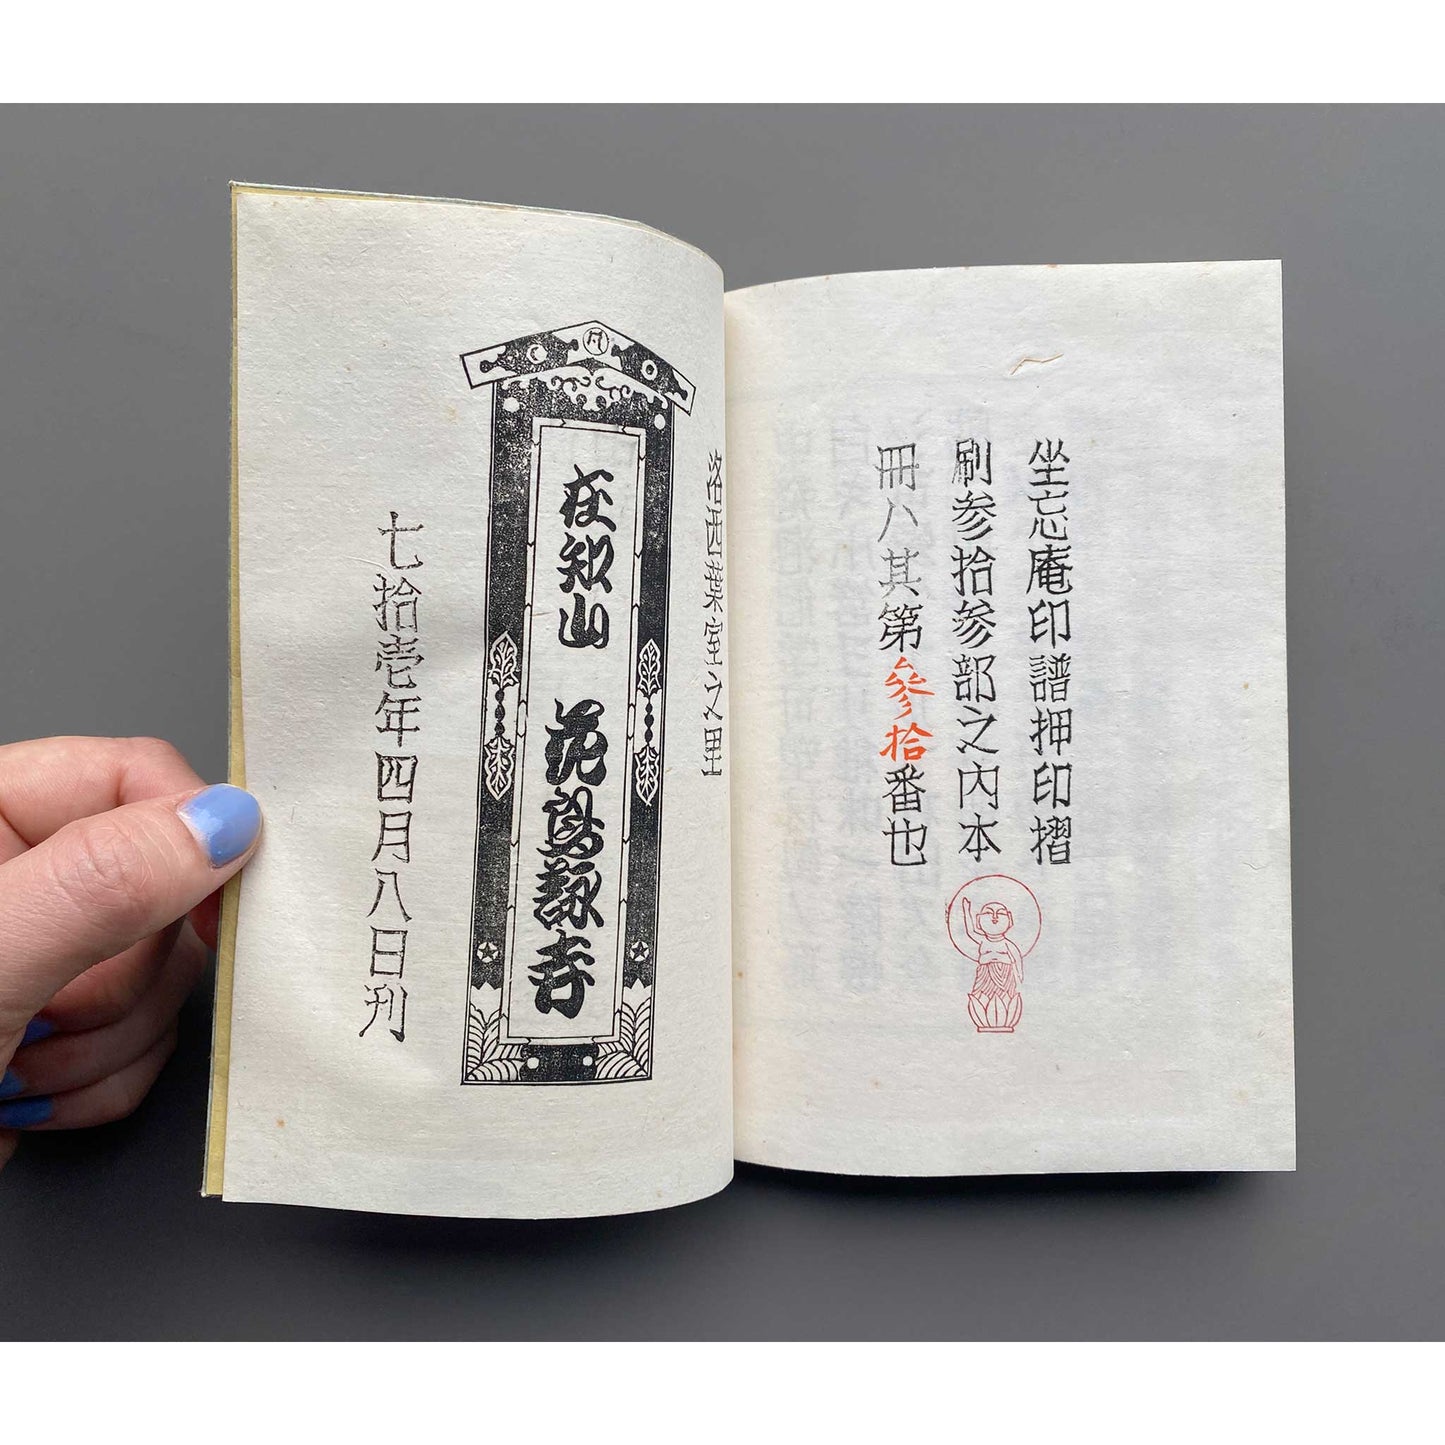 坐忘庵印譜押印摺
刷参拾参部之内本
冊ハ其第參拾番也
洛西葉室之里
知山 鳥 寺
七拾壱年四月八日刊